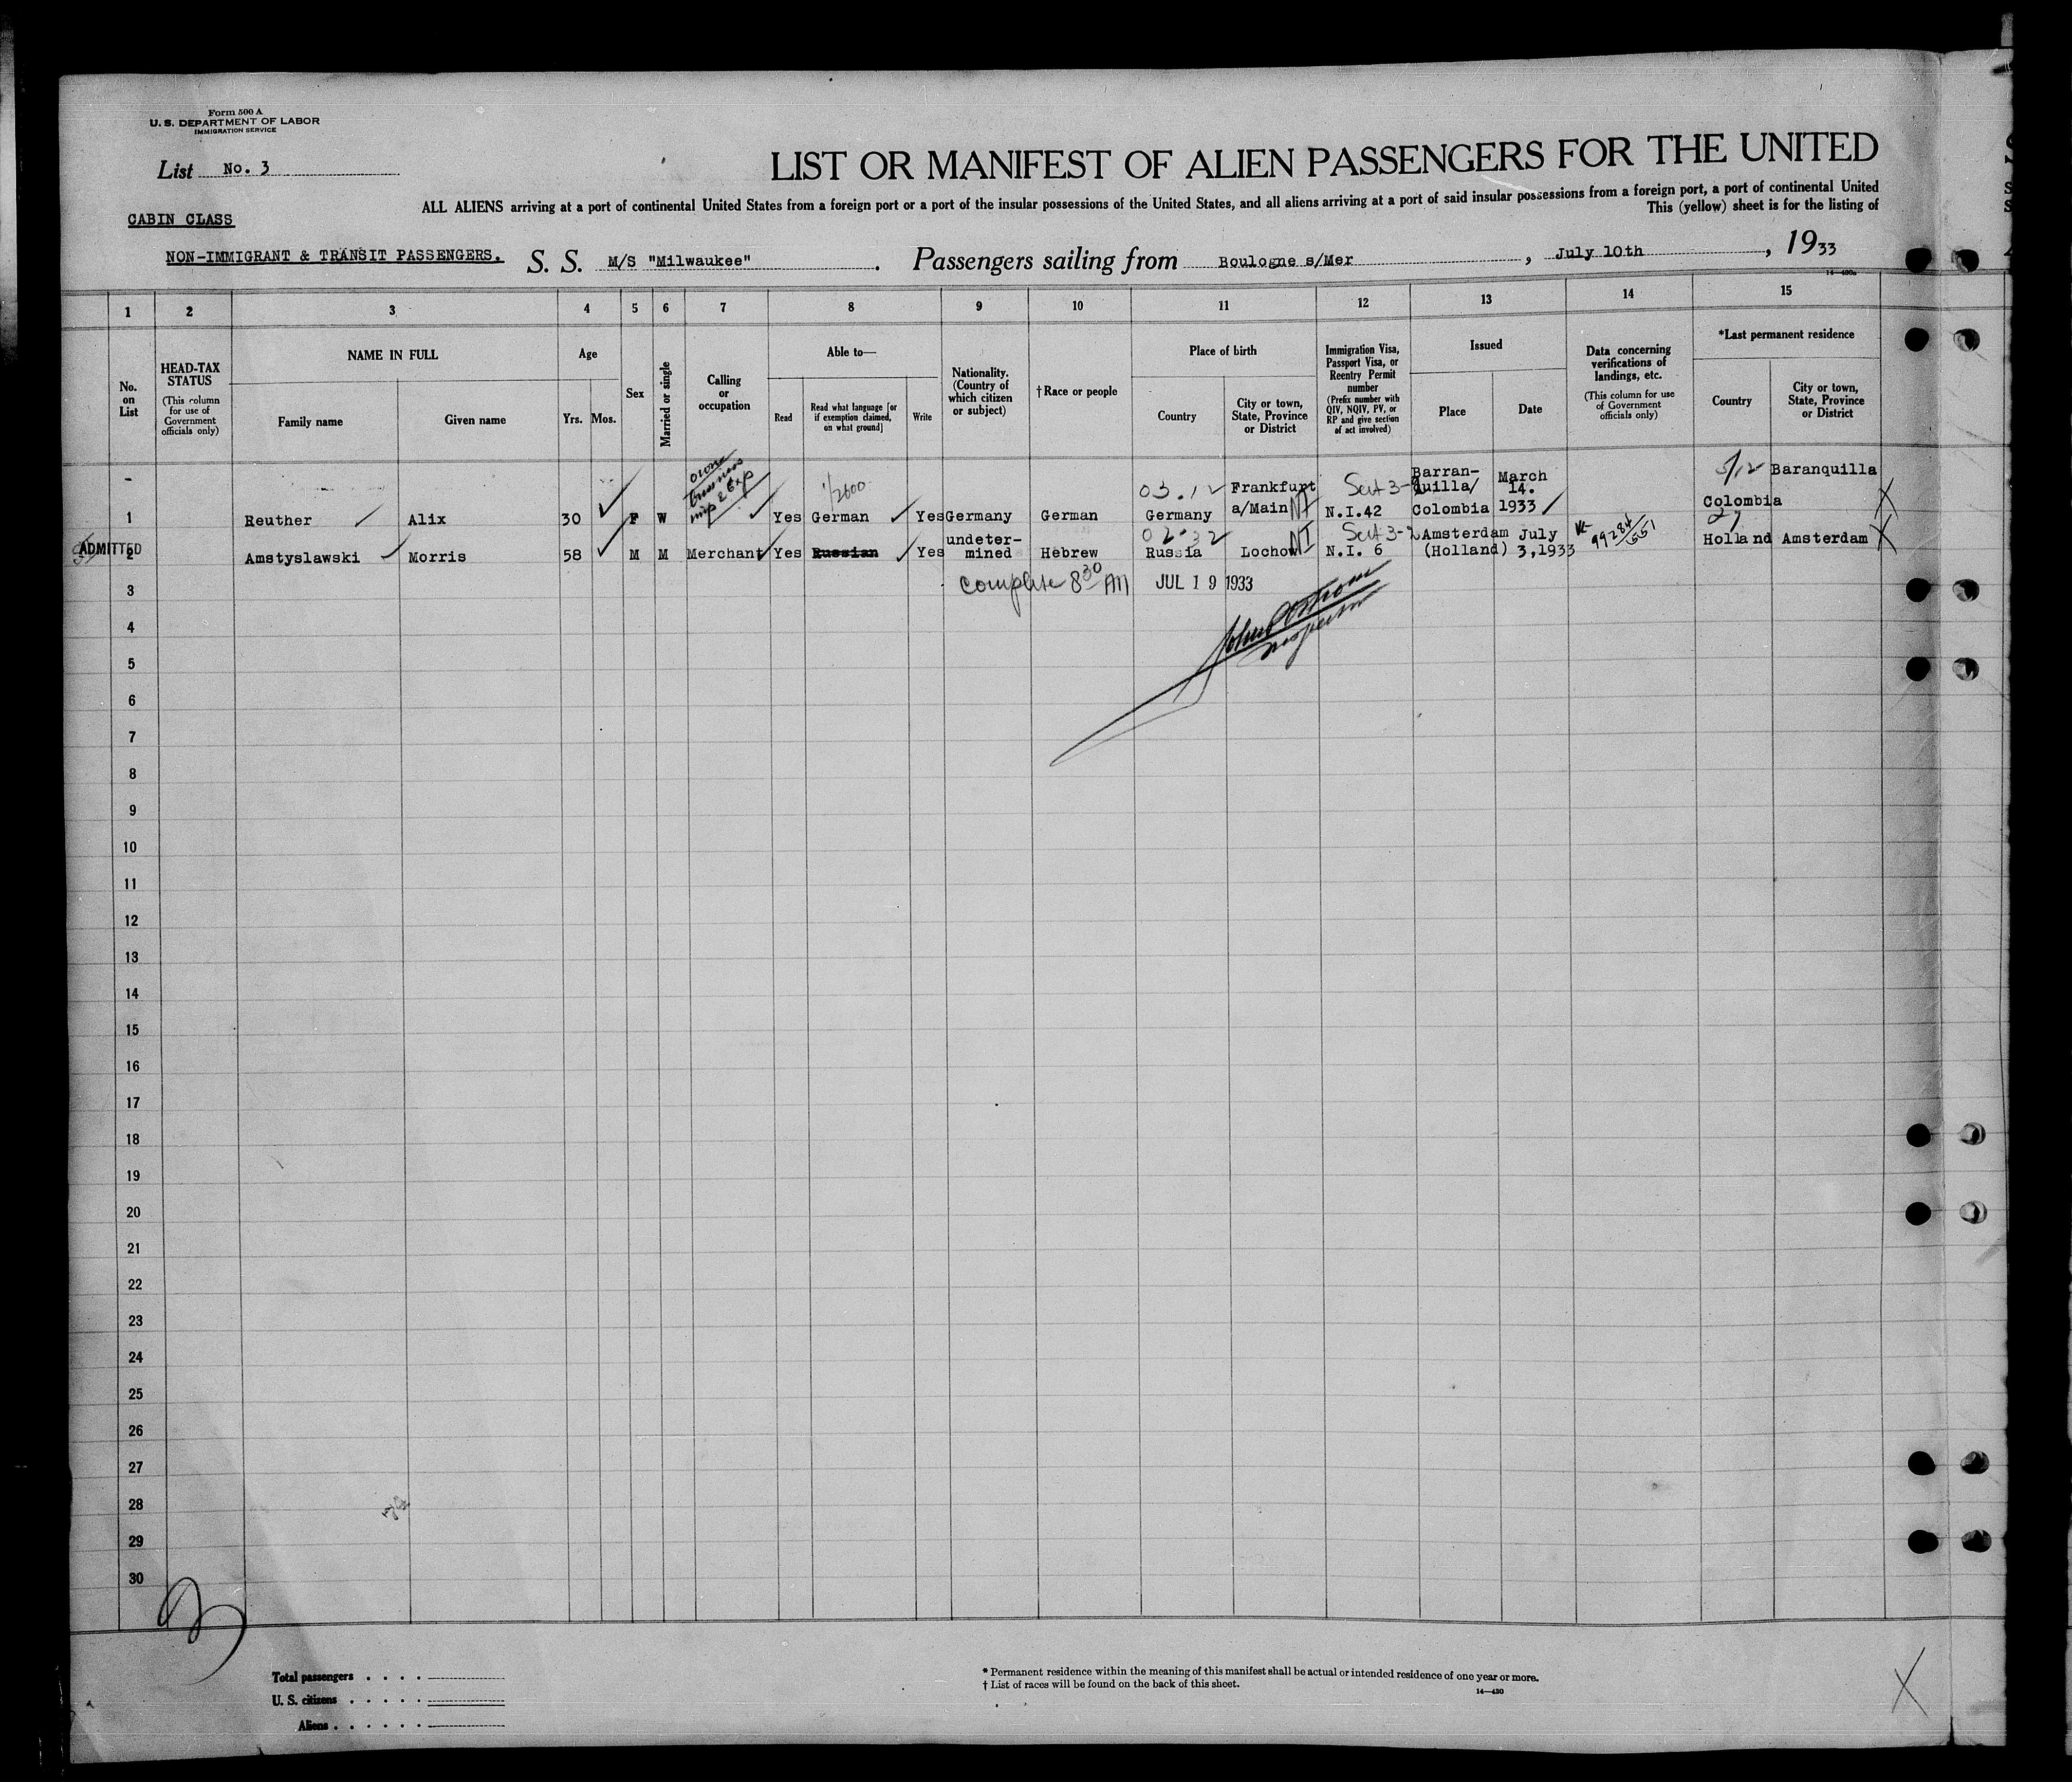 Form 500 A
U. S. DEPARTMENT OF LABOR
IMMIGRATION SERVICE
List No. 3
LIST OR MANIFEST OF ALIEN PASSENGERS FOR THE UNITED
CABIN CLASS
ALL ALIENS arriving at a port of continental United States from a foreign port or a port of the insular possessions of the United States, and all aliens arriving at a port of said insular possessions from a foreign port, a port of continental United
This (yellow) sheet is for the listing of
NON-IMMIGRANT & TRANSIT PASSENGERS.
S. S. M/S "Milwaukee". Passengers sailing from Boulogne s/Mer, July 10th, 1933
14—430a
1 2 3 4 5 6 7 8 9 10 11 12 13 14 15
No. on List
HEAD-TAX STATUS
(This column for use of Government officials only)
NAME IN FULL
Family name
Given name
Age
Yrs.
Mos.
Sex
Married or single
Calling or occupation
Able to—
Read
Read what language [or if exemption claimed, on what ground]
Write
Nationality. (Country of which citizen or subject)
† Race or people
Place of birth
Country
City or town, State, Province or District
Immigration Visa, Passport Visa, or Reentry Permit number
(Prefix number with QIV, NQIV, PV, or RP and give section of act involved)
Issued
Place
Date
Data concerning verifications of landings, etc.
(This column for use of Government officials only)
*Last permanent residence
Country
City or town, State, Province or District
1 Reuther Alix 30 F W Yes German Yes Germany German Germany Frankfurt a/Main NI N.I.42 Barranquilla/ Colombia March 14. 1933 Colombia Baranquilla
ADMITTED
2 Amstyslawski Morris 58 M M Merchant Yes Russian Yes undetermined Hebrew Russia Lochow NI N.I. 6 Amsterdam (Holland) July 3,1933 99284/551 Holland Amsterdam
3 complete 8 30 AM JUL 19 1933
4
Inspector
5
6
7
8
9
10
11
12
13
14
15
16
17
18
19
20
21
22
23
24
25
26
27
28
29
30
Total passengers . . . .
U. S. citizens . . . . .
Aliens . . . . . .
* Permanent residence within the meaning of this manifest shall be actual or intended residence of one year or more.
† List of races will be found on the back of this sheet.
14—430